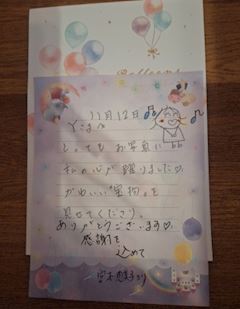 11月12日
とってもお写真に
私の心が躍りました♡
かわいい"宝物"を
見せてくださり、
ありがとうございます♡
感謝を
込めて
より